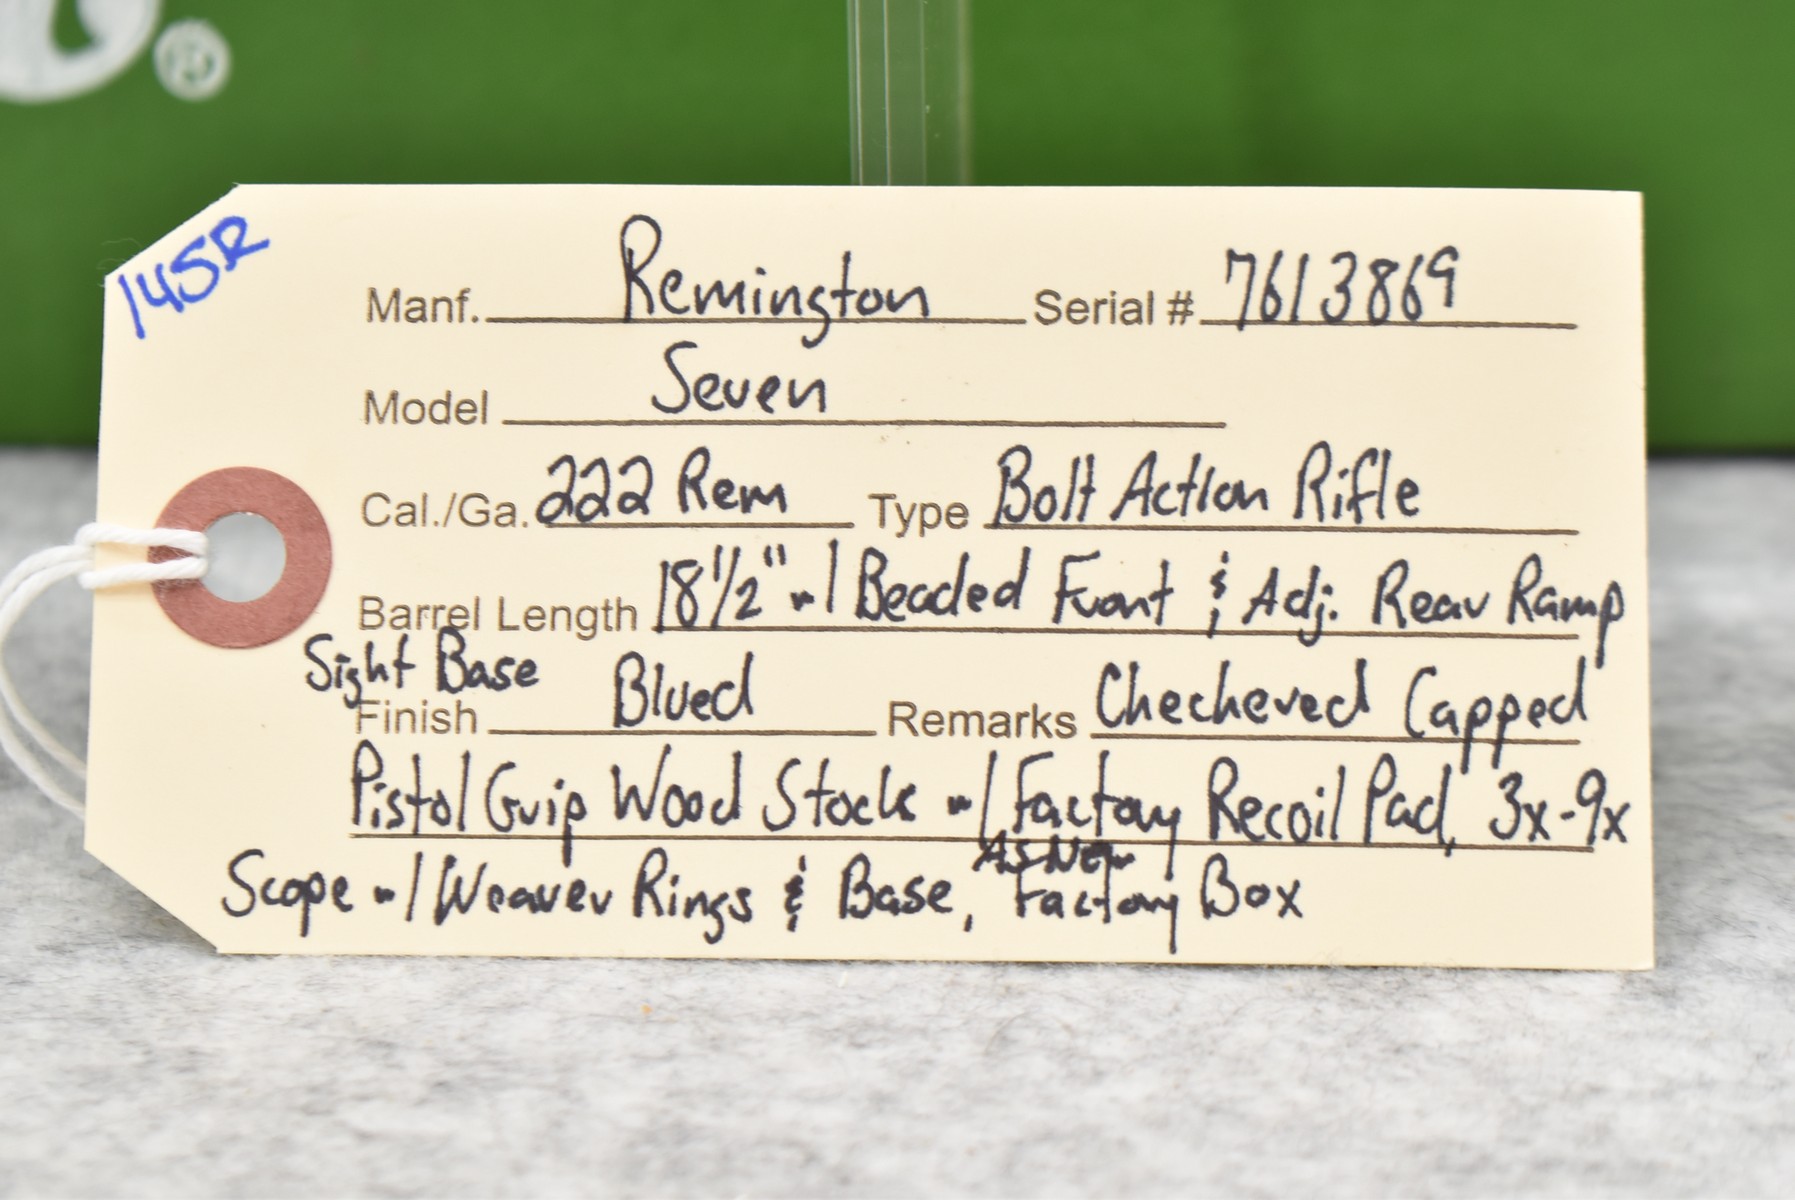 ®
145R
Manf. Remington Serial # 7613869
Model Seven
Cal./Ga. 222 Rem Type Bolt Action Rifle
Barrel Length 18 1/2" w/ Beaded Front & Adj. Rear Ramp
Sight Base
Finish Blued Remarks Checkered Capped
Pistol Grip Wood Stock w/ Factory Recoil Pad, 3x-9x
As New
Scope w/ Weaver Rings & Base, Factory Box